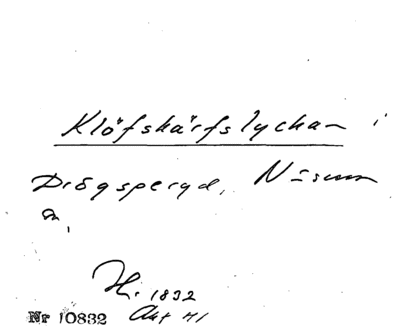 Klöfskärfslyckan i
Drögsperyd, Näsum
H. 1832
Akt 41
Nr 10832